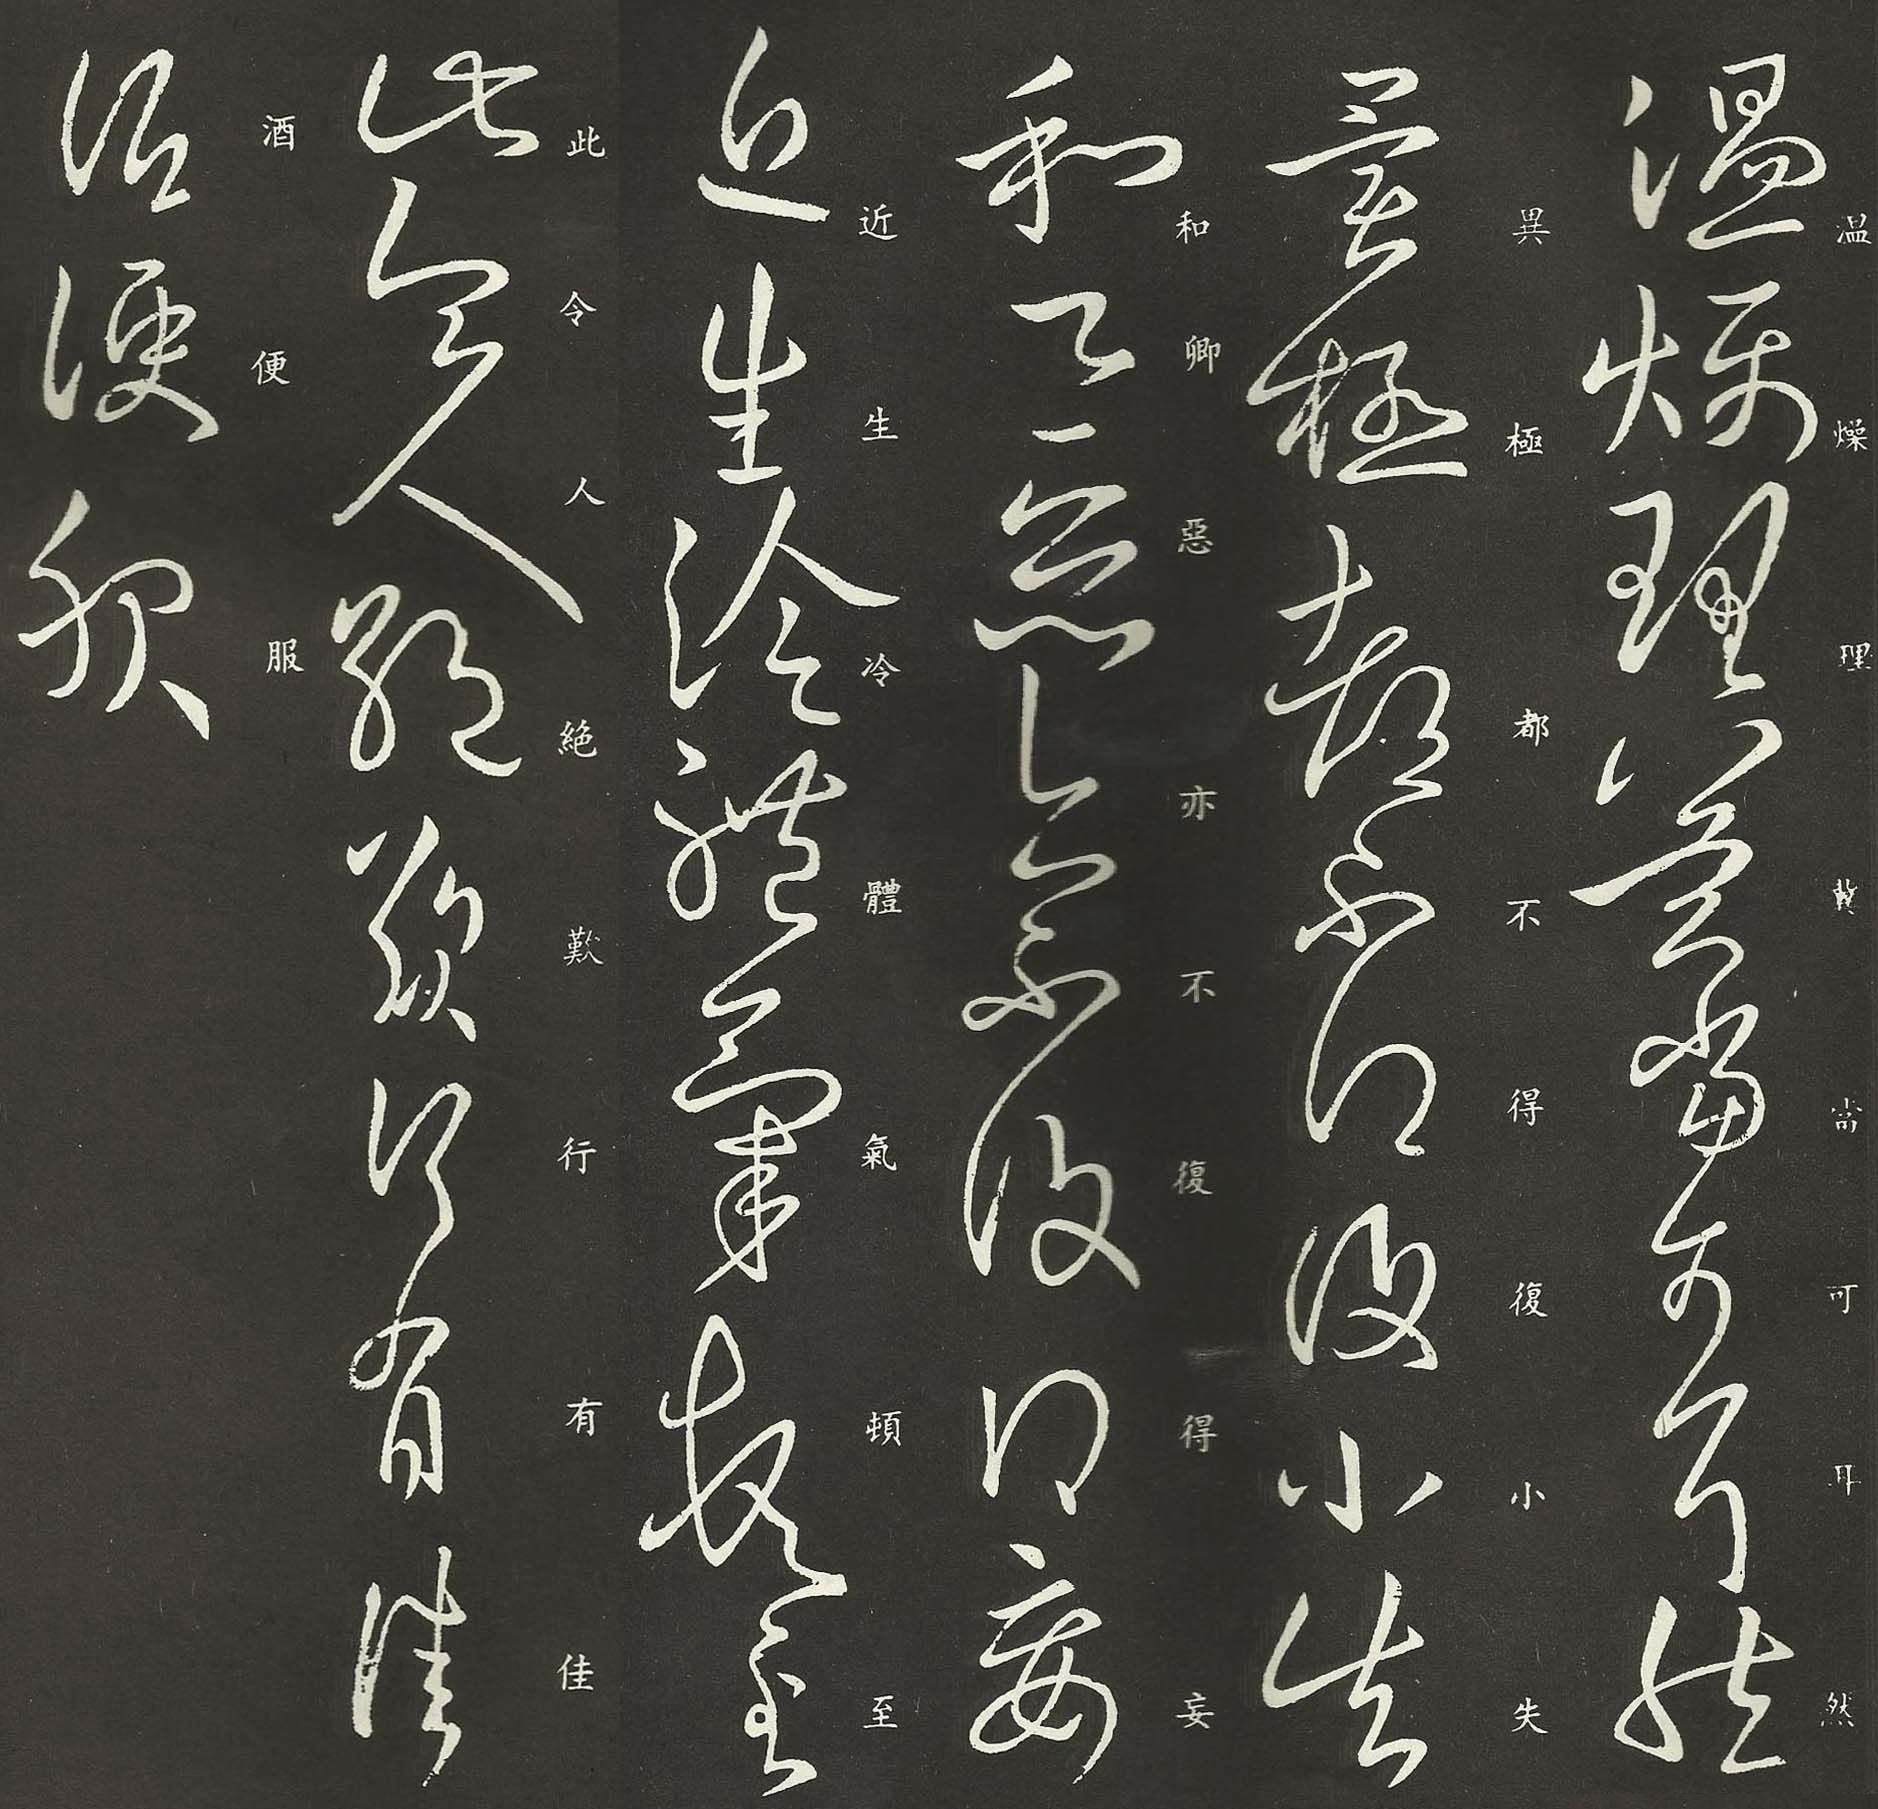 温燥理冀當可耳然
異極都不得復小失
和卿惡亦不復得妄
近生冷體氣頓至
此令人絶歎行有佳
酒便服